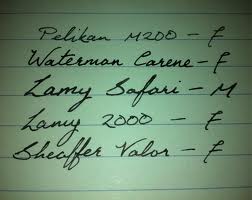 Pelikan M200 - F
Waterman Carene - F
Lamy Safari - M
Lamy 2000 - F
Sheaffer Valor - F